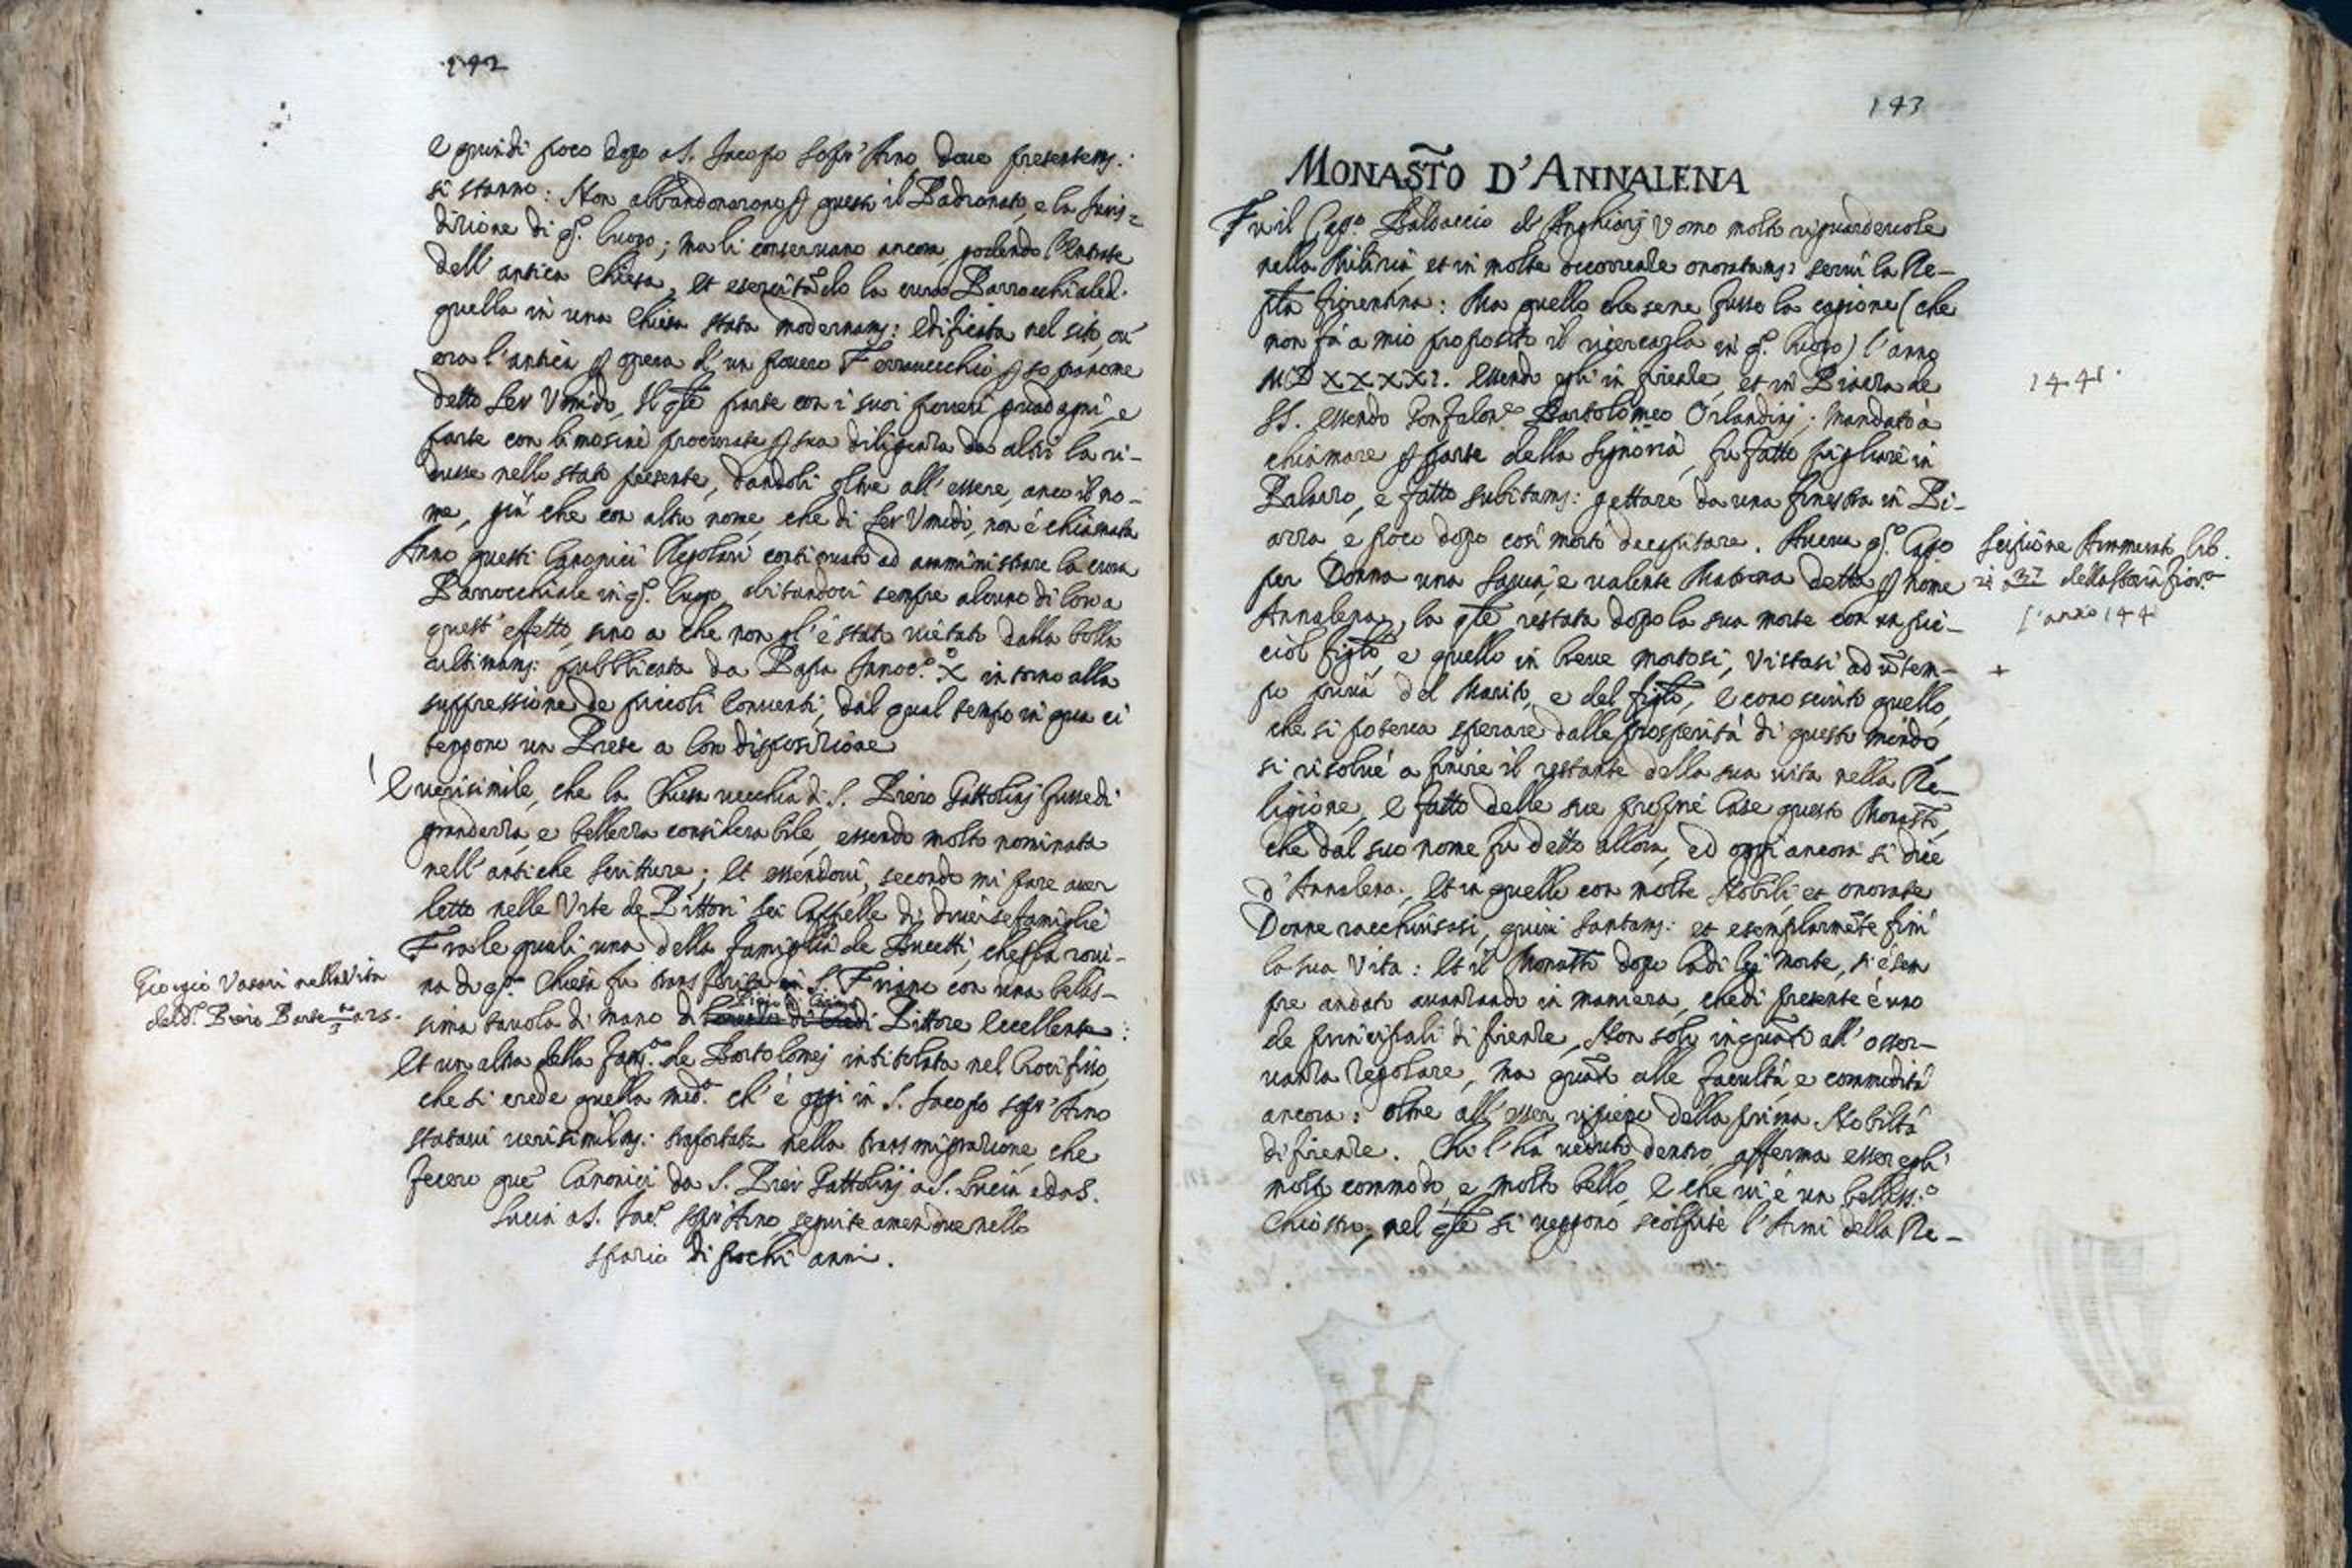 142
e quindi poco dopo a S. Jacopo Sopr'Arno dove presentem.:
si stanno: Non abbandonarono p questo il Padronato, e la Juris=
dizione di q.º luogo; ma li conservano ancora, godendo l'entrate
dell'antica Chiesa, et esercitãdo la cura Parrocchiale d.
quella in una Chiesa stata modernam: edificata nel sito, ov'
era l'antica p opera d'un povero Ferravecchio p sopranome
detto Ser Umido, Il qle parte con i suoi poveri guadagni, e
parte con limosine procurate p sua diligenza da altri la ri-
dusse nello stato presente, dandoli oltre all'essere, anco il no-
me, già che con altro nome, che di Ser Umido, non è chiamata
Anno questi Canonici Regolari continuato ad amministrare la cura
Parrocchiale in q.º luogo, abitandoci sempre alcuno di loro a
quest'effetto, sino a che non gl'è stato vietato dalla bolla
ultimam: pubblicata da Papa Innoc.º X intorno alla
suppressione de piccoli Conventi, dal qual tempo in qua ci
tengono un Prete a loro disposizione
E verisimile, che la Chiesa vecchia di S. Piero Gattolinj fusse di
grandezza, e bellezza considerabile, essendo molto nominata
nell'antiche scritture; Et essendovi, secondo mi pare aver
letto nelle Vite de Pittori sei Cappelle di diverse famiglie
Fra le quali una della famiglia de Pucetti, che p la rovi-
na di q.ª Chiesa fu trasferita in S. Friano con una bellis-
Giorgio Vasari nella Vita
del d.º Piero Parte
sima tavola di mano di Piero di Cosimo Pittore Eccellente:
Et un altra della fam.ª de Bartolomej intitolata nel Crocifisso,
che si crede quella med.ª ch'è oggi in S. Jacopo sopr'Arno
statavi verisimilm.: trasportata nella trasmigrazione, che
fecero que' Canonici da S. Pier Gattolinj a S. Lucia e da S.
Lucia a S. Jac.º sopr'Arno seguite amendue nello
spazio di pochi anni.
143
MONASTO D'ANNALENA
Fu il Cap.º Baldaccio d'Anghiarj Uomo molto riguardevole
nella Milizia, et in molte occorrenze onoratam: servì la Re-
pla fiorentina: Ma quello che se ne fusse la cagione (che
non fà a mio proposito il ricercarla in q.º luogo) l'anno
MCDXXXXI. Essendo egli in firenze, et in Piazza de
1441.
SS. essendo Gonfalon.º Bartolomeo Orlandinj; mandato a
chiamare p parte della Signoria, fu fatto pigliare in
Palazzo, e fatto subitam: gettare da una finestra in Pi-
azza e poco dopo così morto decapitare. Aveva q.º Cap.º
Scipione Ammirato lib.
per Donna una Savia, e valente Matrona detta p nome
21 della storia fior.ª
Annalena, la qle restata dopo la sua morte con un pic-
l'anno 144
ciol figlo, e quello in breve mortosi, Vistasi ad ũ tem-
+
po priva del Marito, e del figlo, e conosciuto quello,
che si poteva sperare dalle prosperità di questo mondo,
si risolvé a finire il restante della sua vita nella Re-
ligione, e fatto delle sue proprie Case questo Monasto,
che dal suo nome fu detto allora, ed oggi ancora si dice
d'Annalena; Et in quello con molte Nobili, et onorate
Donne racchiusasi, quivi santam: et esemplarmẽte finì
la sua Vita: Et il Monasto dopo la di lei morte, si è sem
pre andato avanzando in maniera, che di presente è uno
de principali di firenze, Non solo in quãto all'osser-
vanza regolare, ma quãto alle facultà, e commodità
ancora: oltre all'esser ripieno della prima Nobiltà
di firenze. Chi l'hà veduto dentro, afferma esser egli
molto commodo, e molto bello, e che vi è un belliss.º
Chiostro, nel qle si veggono scolpite l'Armi della Re-